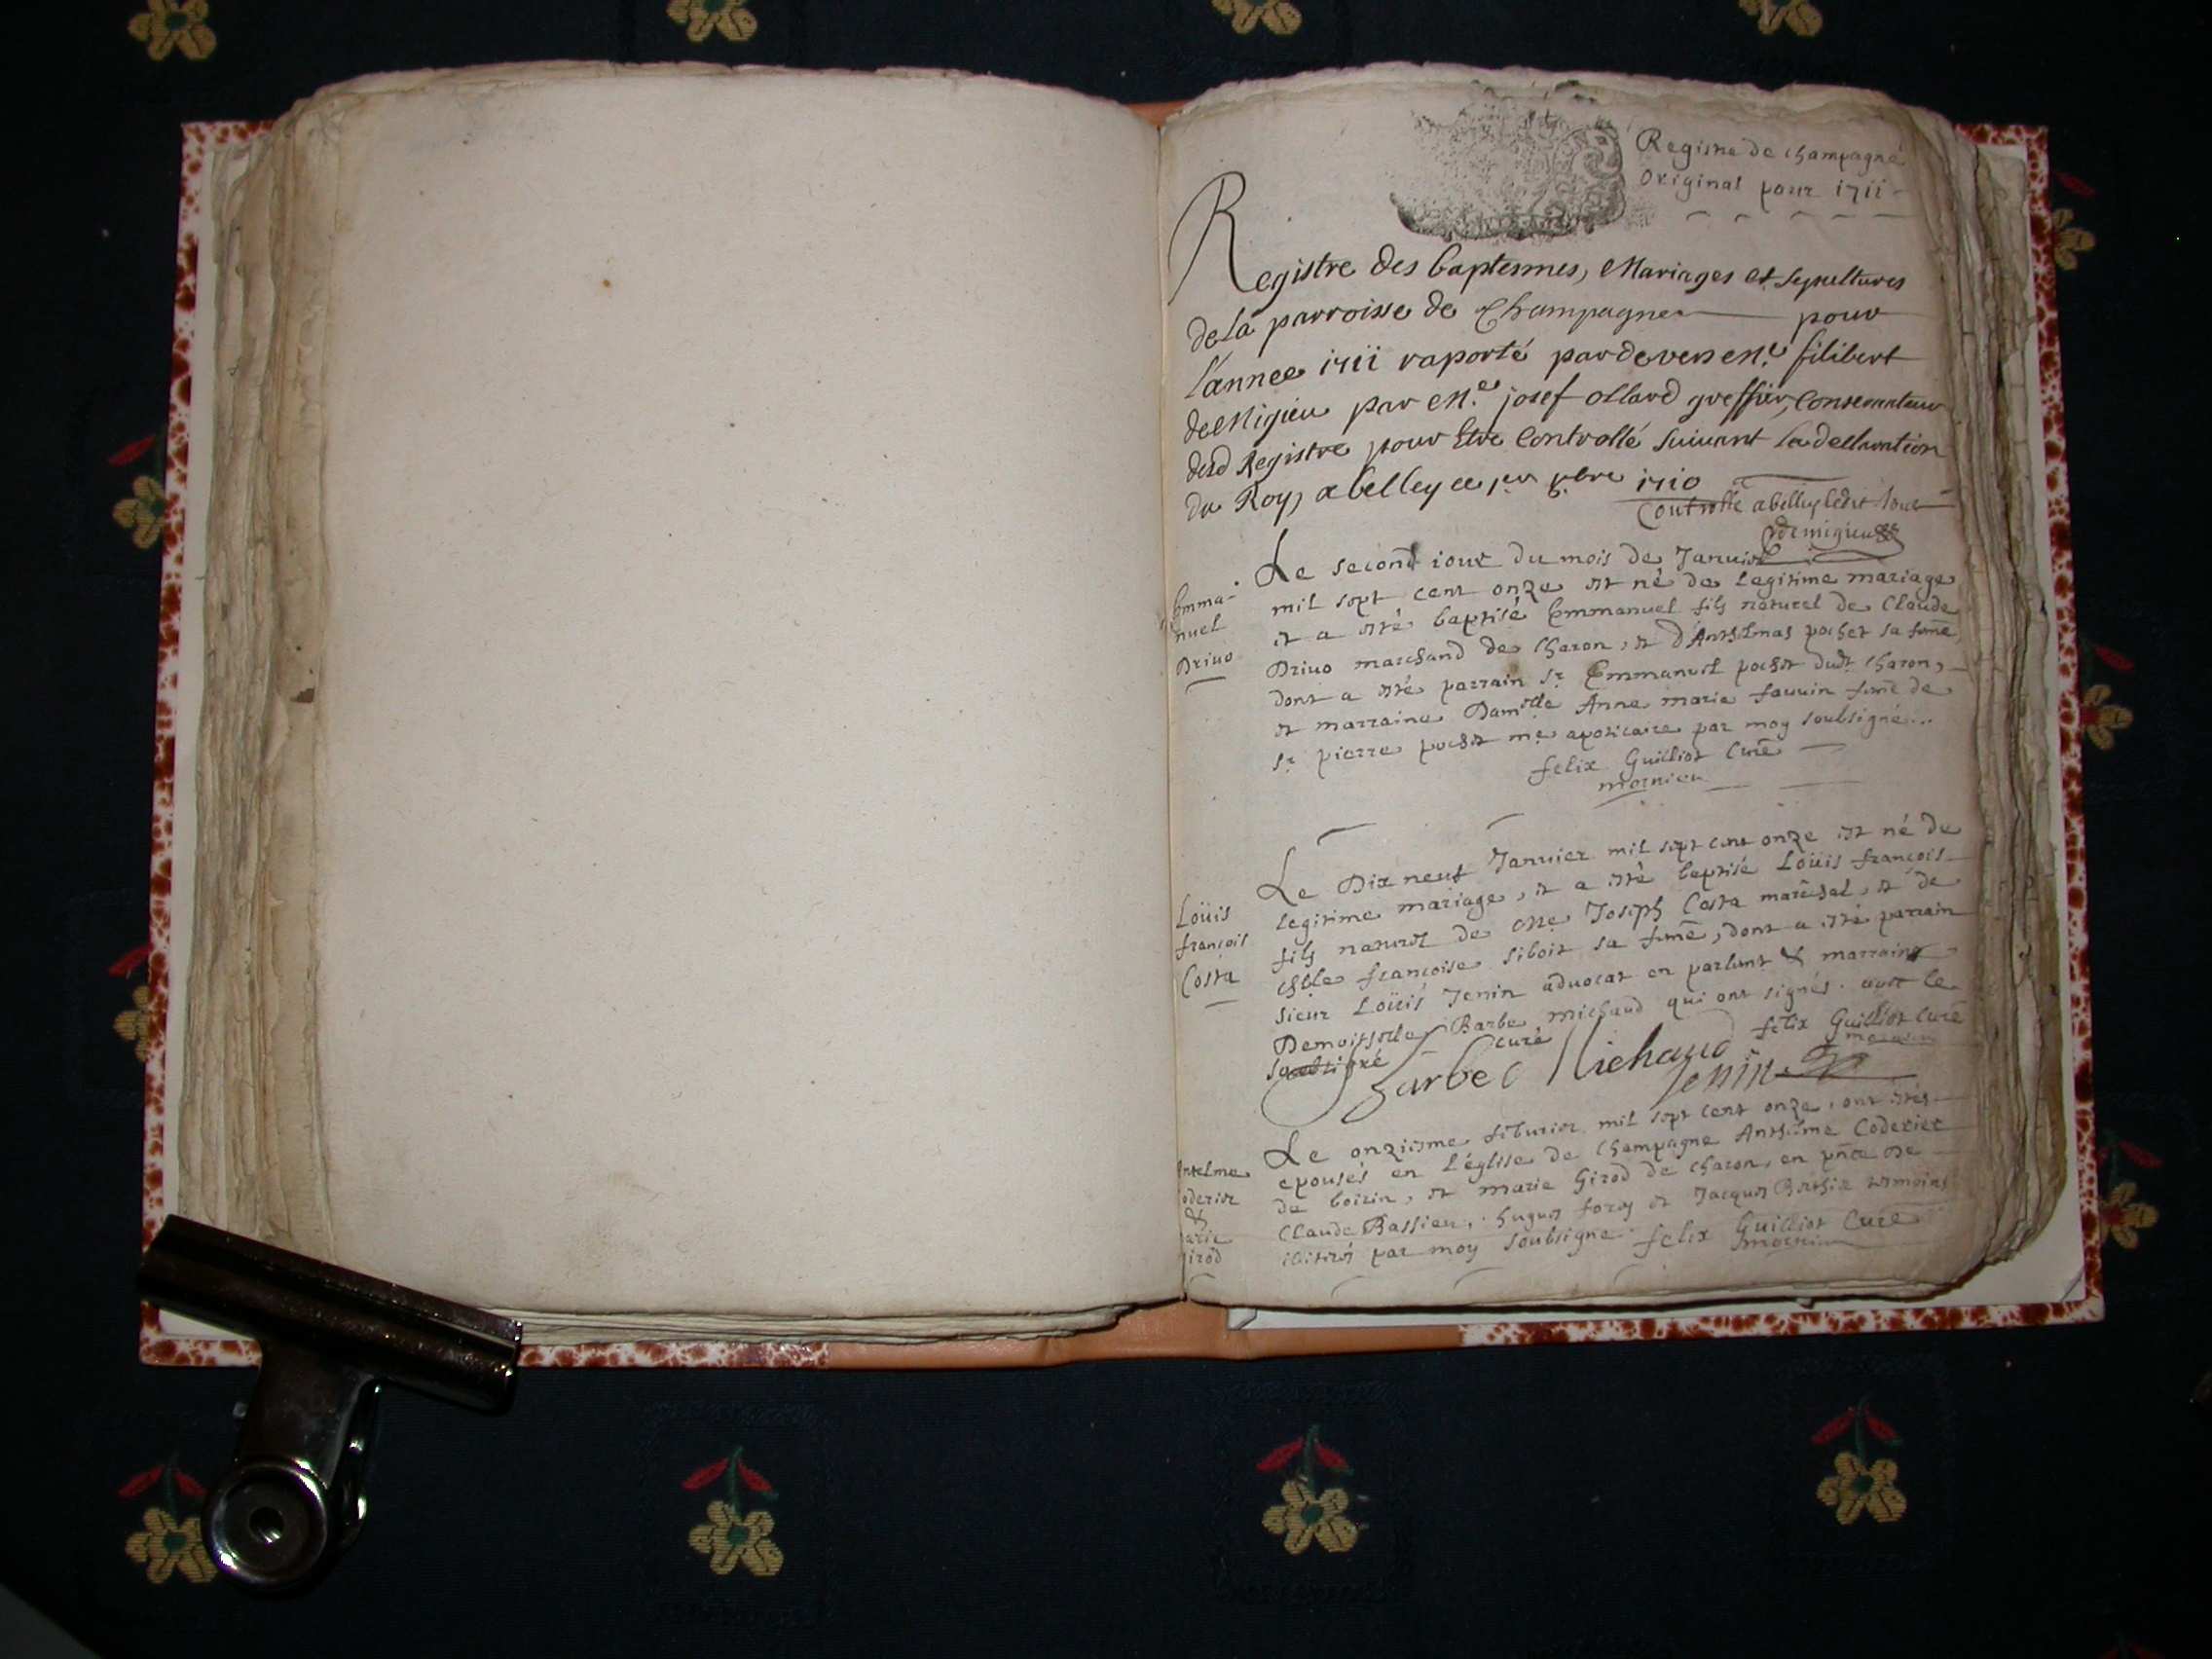 Registre de champagne
Original pour 1711
Registre des baptesmes, Mariages et sepultures
de la parroisse de Champagne pour
l'annee 1711 raporté pardevers Mr. filibert
de Migieu par Me. josef ollard greffier, Conservateur
desd Registre pour Etre Controllé suivant la declaration
du Roy, a belley ce per xbre 1710
Controllé a belley ledit Jour
demigieu
Emma-
nuel
Drivo
Le second iour du mois de Janvier
mil sept cent onze est né de legitime mariage
et a esté baptisé Emmanuel fils naturel de Claude
Drivo marchand de Charon, et d'Anthelmas pochet sa feme,
dont a esté parrain Sr Emmanuel pochet dudt charon,
et marraine Damoille Anne marie fauvin feme de
Sr pierre pochet me apoticaire par moy soubsigné...
felix Guilliot Curé
mornieu
Loüis
françois
Costa
Le Dix neuf Janvier mil sept cent onze est né de
legitime mariage, et a esté baptisé Loüis françois
fils naturel de Me Joseph Costa marêchal, et de
françoise siboit sa feme, dont a esté parrain
Sieur Loüis Jenin advocat en parlemt & marraine
Demoiselle Barbe michaud qui ont signés avec le
curé
felix Guilliot Curé
Barbe Michaud
Jenin
Le onziesme febvrier mil sept cent onze, ont estés
epousés en l'église de Champagne Anthelme Coderier
de boirin, et marie Girod de charon, en pnce de
Claude Bassieu, hugues forey et Jacques Berthie tesmoins
par moy soubsigne felix Guilliot Curé
mornieu